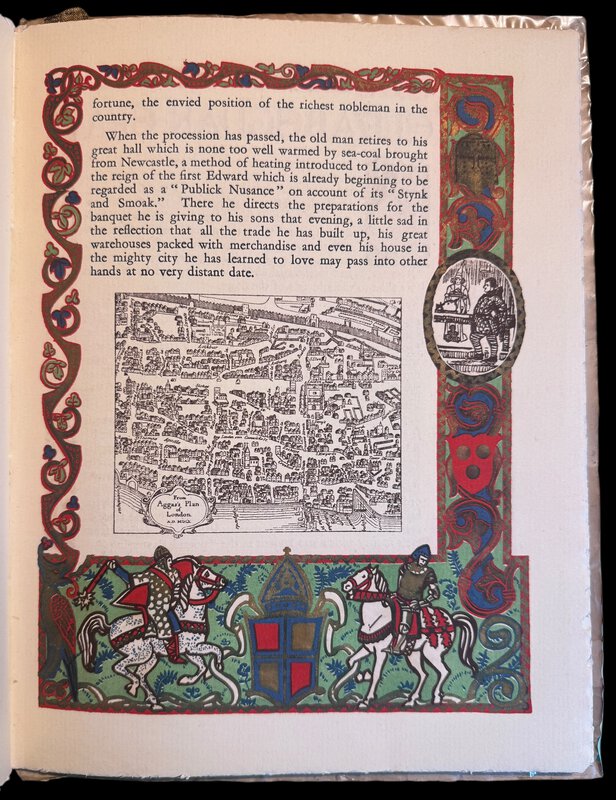 fortune, the envied position of the richest nobleman in the
country.
When the procession has passed, the old man retires to his
great hall which is none too well warmed by sea-coal brought
from Newcastle, a method of heating introduced to London in
the reign of the first Edward which is already beginning to be
regarded as a “Publick Nusance” on account of its “Stynk
and Smoak.” There he directs the preparations for the
banquet he is giving to his sons that evening, a little sad in
the reflection that all the trade he has built up, his great
warehouses packed with merchandise and even his house in
the mighty city he has learned to love may pass into other
hands at no very distant date.
From
Aggas's Plan
of
London.